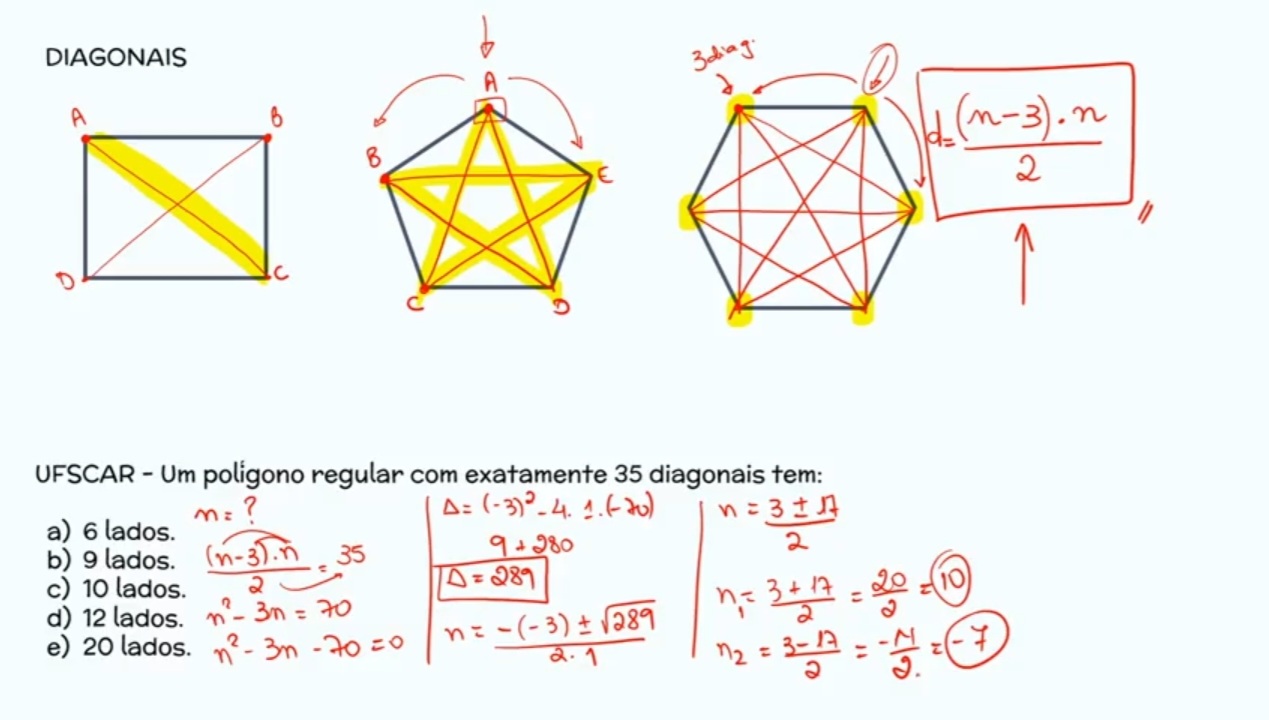 DIAGONAIS
A
B
C
D
A
B
C
D
E
3 diag.
d = (n-3).n / 2
UFSCAR - Um polígono regular com exatamente 35 diagonais tem:
a) 6 lados.
b) 9 lados.
c) 10 lados.
d) 12 lados.
e) 20 lados.
n = ?
(n-3).n / 2 = 35
n² - 3n = 70
n² - 3n - 70 = 0
Δ = (-3)² - 4. 1. (-70)
9 + 280
Δ = 289
n = -(-3) ± √289 / 2.1
n = 3 ± 17 / 2
n₁ = 3 + 17 / 2 = 20 / 2 = 10
n₂ = 3 - 17 / 2 = -14 / 2. = -7